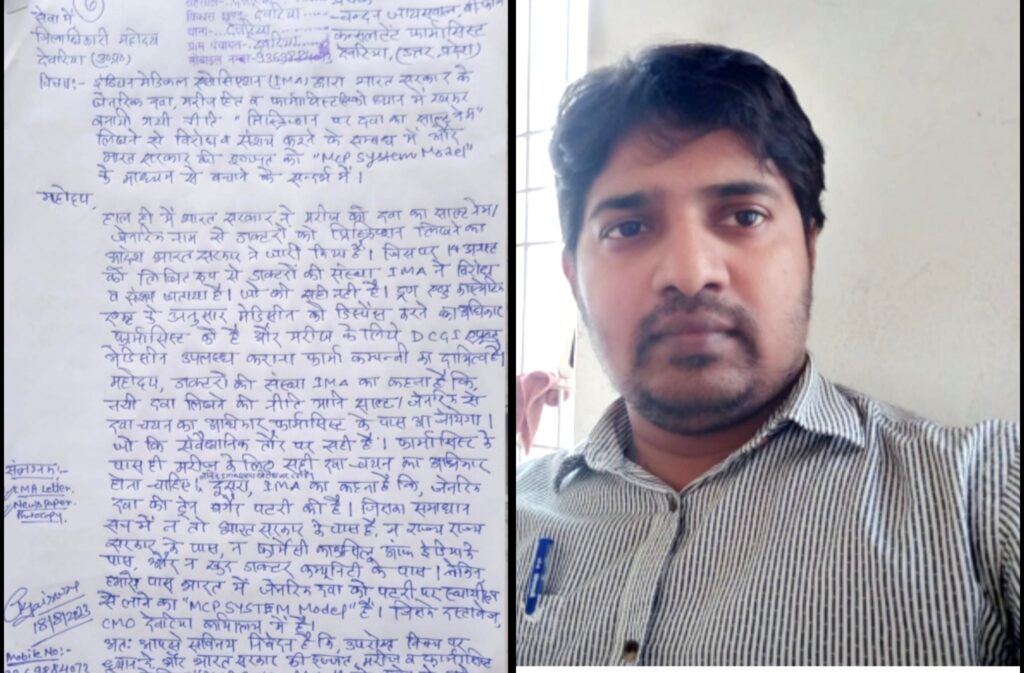 सेवा में
जिलाधिकारी महोदय
देवरिया (उ०प्र०)
विकास खण्ड-...देवरिया...
थाना-...देवरिया...
ग्राम पंचायत-...देवरिया...
मोबाइल नम्बर-
- चन्दन जायसवाल,
कन्सल्टेंट फार्मासिस्ट
देवरिया, (उत्तर प्रदेश)
विषय:- इंडियन मेडिकल एसोसिएशन (IMA) द्वारा भारत सरकार के
जेनेरिक दवा, मरीज हित व फार्मासिस्ट को ध्यान में रखकर
बनायी गयी नीति "प्रिस्क्रिप्शन पर दवा का साल्ट नेम"
लिखने से विरोध व संशय करने के सम्बन्ध में और
भारत सरकार की इज्जत को "MCP System Model"
के माध्यम से बचाने के सन्दर्भ में।
महोदय,
हाल ही में भारत सरकार ने मरीज की दवा का साल्ट नेम/
जेनरिक नाम से डाक्टरों को प्रिस्क्रिप्शन लिखने का
आदेश भारत सरकार ने जारी किया है। जिस पर 14 अगस्त
को लिखित रूप से डाक्टरों की संस्था IMA ने विरोध
व संशय जताया है। जो की सही नही है। ड्रग एण्ड कास्मेटिक
एक्ट के अनुसार मेडिसीन को डिस्पेंस करने का अधिकार
फार्मासिस्ट को है और मरीज के लिये DCGI
मेडिसीन उपलब्ध कराना फार्मा कम्पनी का दायित्व है।
महोदय, डाक्टरों की संस्था IMA का कहना है कि,
नयी दवा लिखने की नीति यानि साल्ट/जेनरिक से
दवा चयन का अधिकार फार्मासिस्ट के पास आ जायेगा।
जो कि संवैधानिक तौर पर सही है। फार्मासिस्ट के
पास ही मरीज के लिए सही दवा-चयन का अधिकार
होना चाहिए। दूसरा, IMA का कहना है कि, जेनरिक
दवा की ट्रेन बगैर पटरी की है। जिसका समाधान
सच में न तो भारत सरकार के पास है, न राज्य राज्य
सरकार के पास, न फार्मेसी काउंसिल आफ इंडिया के
पास, और न खुद डाक्टर कम्युनिटी के पास। लेकिन
हमारे पास भारत में जेनरिक दवा को पटरी पर स्थायी
से लाने का "MCP SYSTEM Model" है। जिसके दस्तावेज,
CMO देवरिया कार्यालय में है।
अतः आपसे सविनय निवेदन है कि, उपरोक्त विषय पर
ध्यान दे और भारत सरकार की इज्जत, मरीज व फार्मासिस्ट
संलग्नक:-
IMA Letter.
NewsPaper
Photocopy.
18/8/2023
Mobile No:-